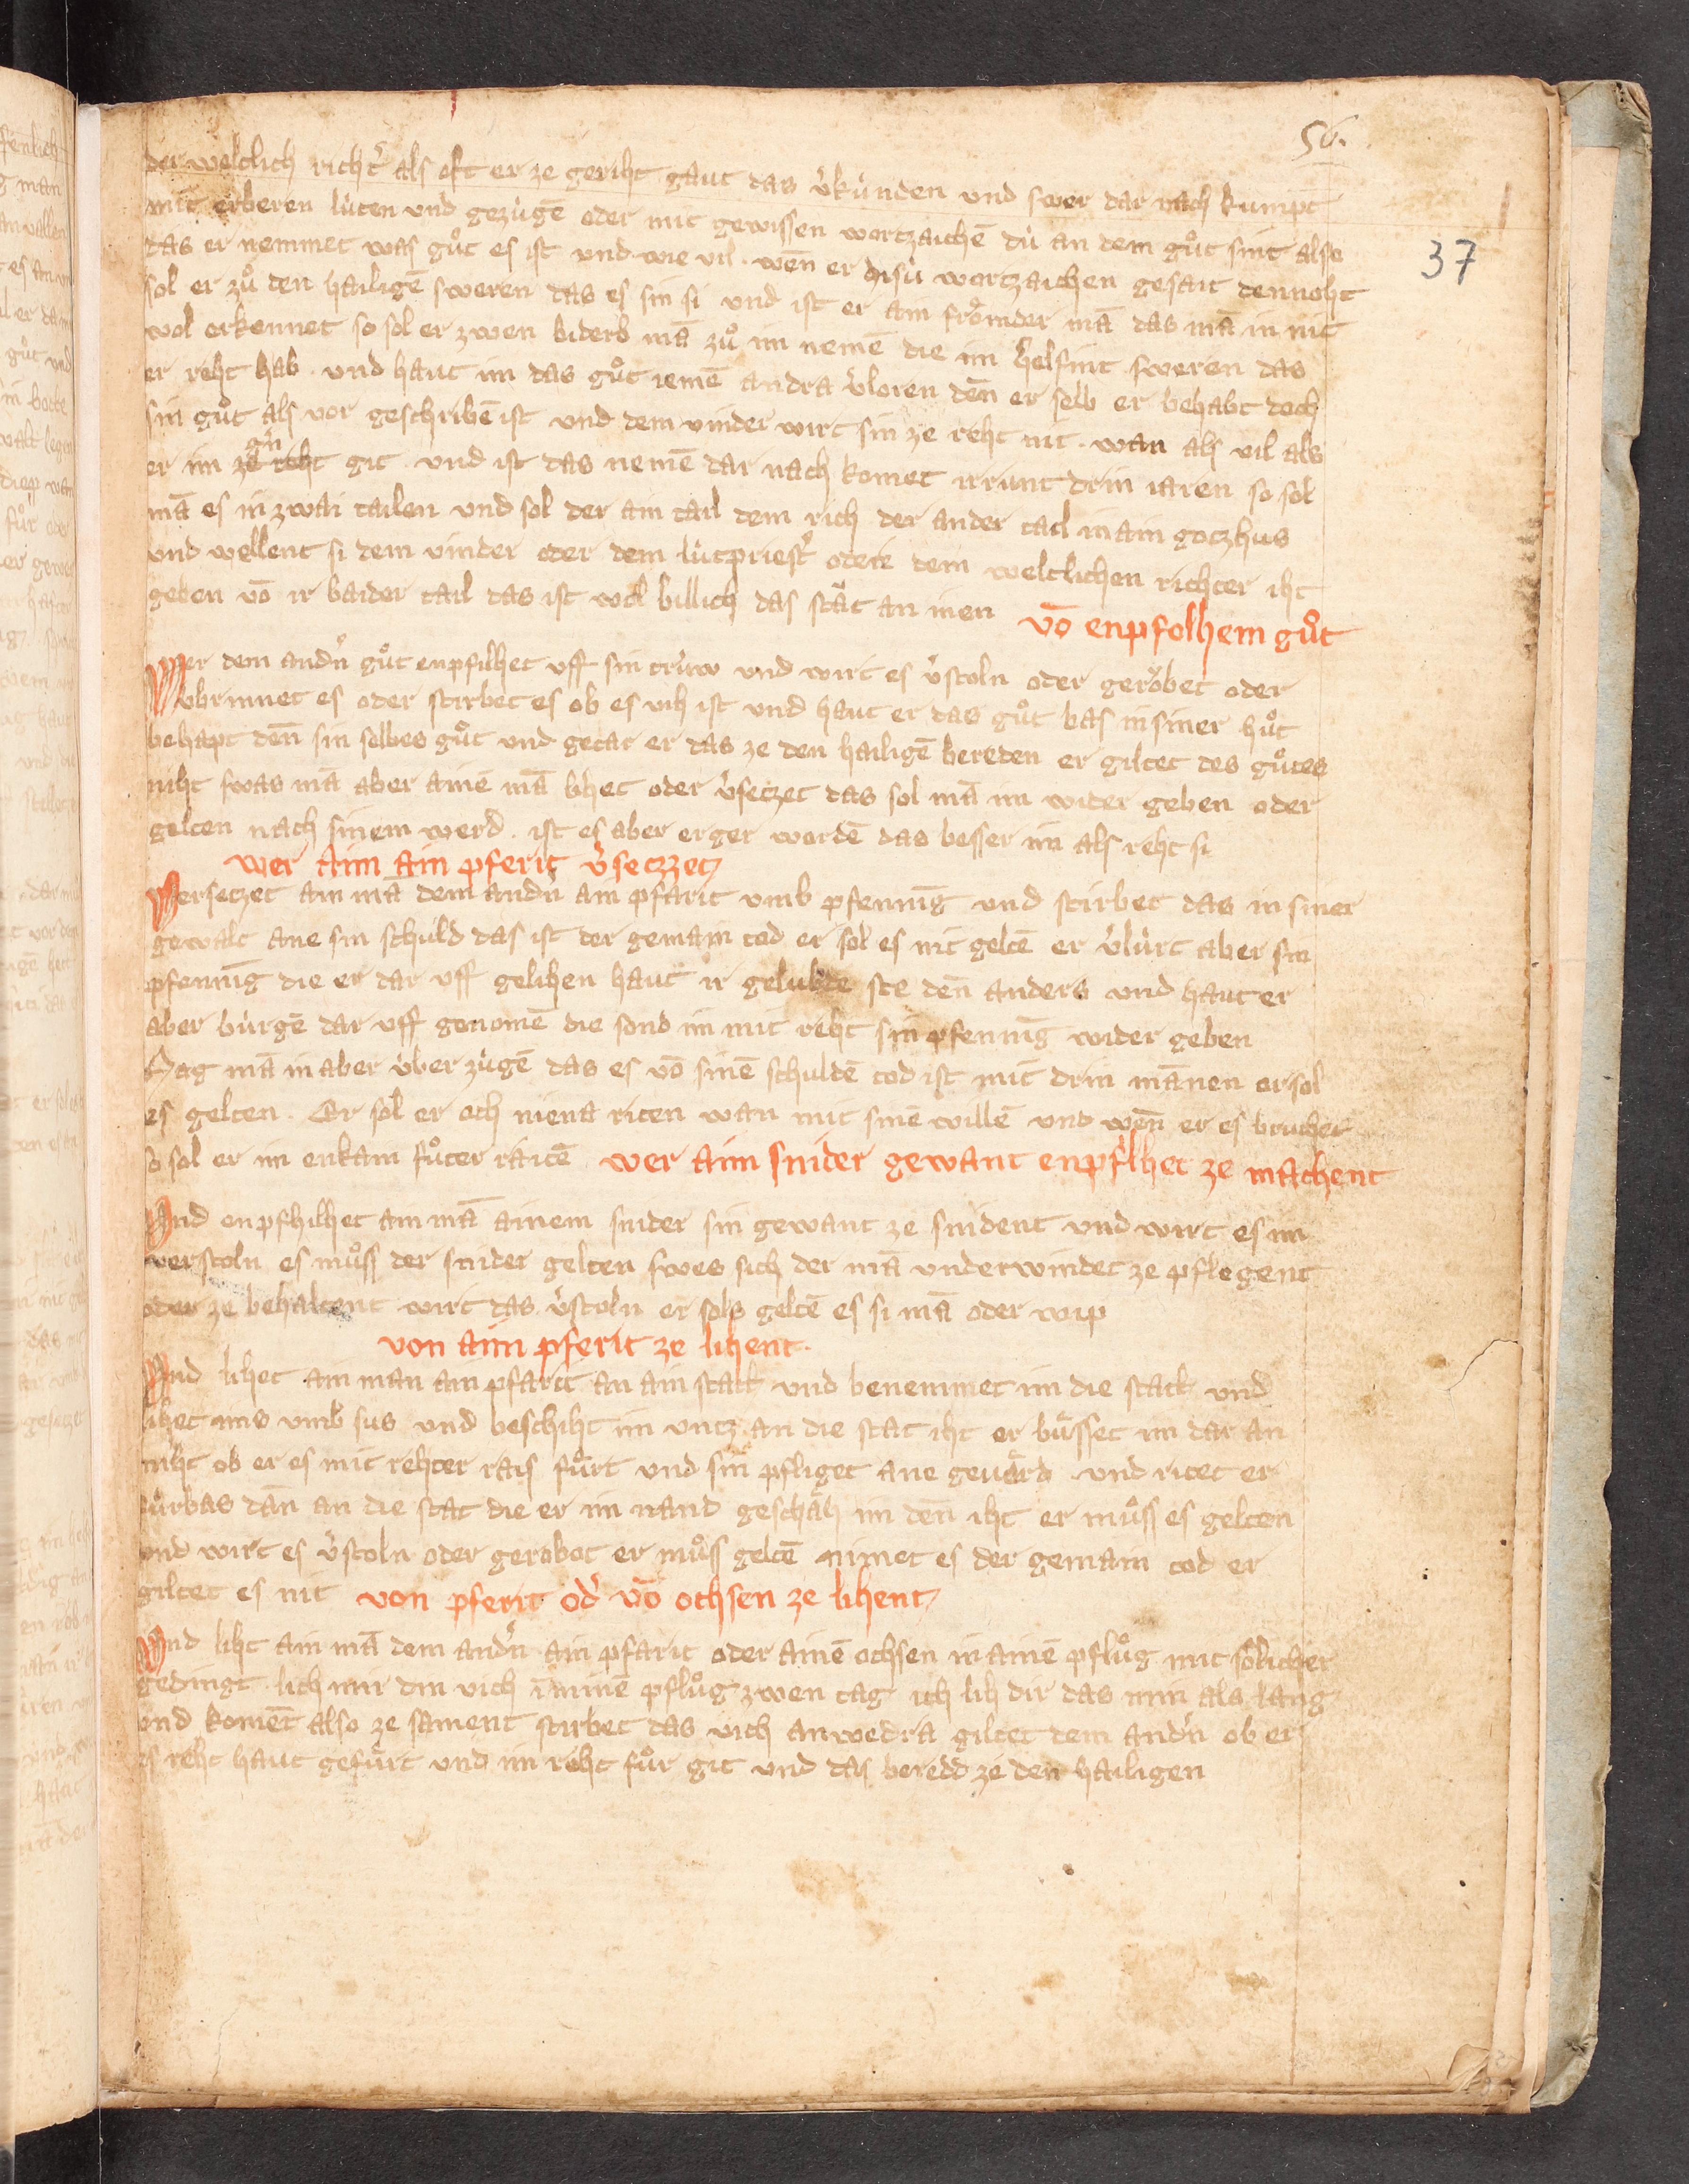 56.
37
der weltlich richtͤ als oft er ze geriht gaut das v̓künden und swer dar nach kumpt
mit erberen lüten und gezügē oder mit gewissen wortzaichē dü an dem guͦt sint also
das er nemmet was guͦt es ist und wie vil . wen̄ er disü wortzaichen gesait dennoht
sol er zuͦ den hailigē sweren das es sin si und ist er ain froͤmder mā das mā in nit
wol erkennet so sol er zwen biderb mā zuͦ im nemē die im helfint sweren das
er reht hab . und haut im das guͦt iemē andra v̓loren den̄ er selb er behabt doch
sin guͦt als vor geschribē ist und dem vinder wirt sin ze reht nit . wan als vil als
er im ze reht git . und ist das nemē dar nach komet irrunt drin iaren so sol
mā es in zwai tailen und sol der ain tail dem rich der ander tail in ain gotzhus
und wellent si dem vinder oder dem lütpriestͤ oder dem weltlichen richter iht
geben vō ir baider tail das ist wol billich das staͤt an inen vō enpfolhem guͦt
Wer dem andn̓ guͦt enpfilhet uff sin trüw und wirt es v̓stoln oder geroͤbet oder
v̓brinnet es oder stirbet es ob es vih ist und haut er das guͦt bas in siner huͦt
behapt den̄ sin selbes guͦt und getar er das ze den hailigē bereden er giltet des guͦtes
niht swas mā aber ainē mā lihet oder v̓setzet das sol mā im wider geben oder
gelten nach sinem werd . ist es aber erger wordē das besser im als reht si
wer aim ain pferit v̓setzzet
Versetzet ain mā dem andn̓ ain pfarit umb pfennīg und stirbet das in siner
gewalt ane sin schuld das ist der gemain tod er sol es nit geltē er v̓lürt aber sin
pfennīg die er dar uff gelihen haut ir gelubde ste den̄ anders und haut er
aber bürgē dar uff genomē die sond im mit reht sin pfennīg wider geben
Mag mā in aber über zügē das es vō sinē schuldē tod ist mit drin mānen er sol
es gelten . Er sol er och niena riten wan mit sinē willē und wen̄ er es bruchet
so sol er im enkain fuͦter raitē wer aim snider gewant enpfilhet ze machent
Und enpfhilhet ain mā ainem snider sin gewant ze snident und wirt es im
verstoln es muͦss der snider gelten swes sich der mā underwindet ze pflegent
oder ze behaltent wirt das v̓stoln er sols geltē es si mā oder wip
von aim pferit ze lihent .
Und lihet ain man ain pfarit an ain statt und benemmet im die statt und
lihet ims umb sus und beschiht im untz an die stat iht er buͤsset im dar an
niht ob er es mit rehter rais fuͤrt und sin pfliget ane geuaͤrd . und ritet er
fürbas dan̄ an die stat die er im nand geschaͤh im den̄ iht er muͦss es gelten
und wirt es v̓stoln oder gerobot er muͦss geltē nimet es der gemain tod er
giltet es nit von pferit od̓ vō ochsen ze lihent
Und liht ain mā dem andn̓ ain pfarit oder ainē ochsen in ainē pfluͦg mit soͤlicher
gedingt . lich mir din vich ī minē pfluͦg zwen tag ich lih dir das min als lang
und koment also ze sament stirbet das vich anwedra giltet dem andn̓ ob er
es reht haut gefuͤrt und im reht fuͦr git und das beredd ze den hailigen